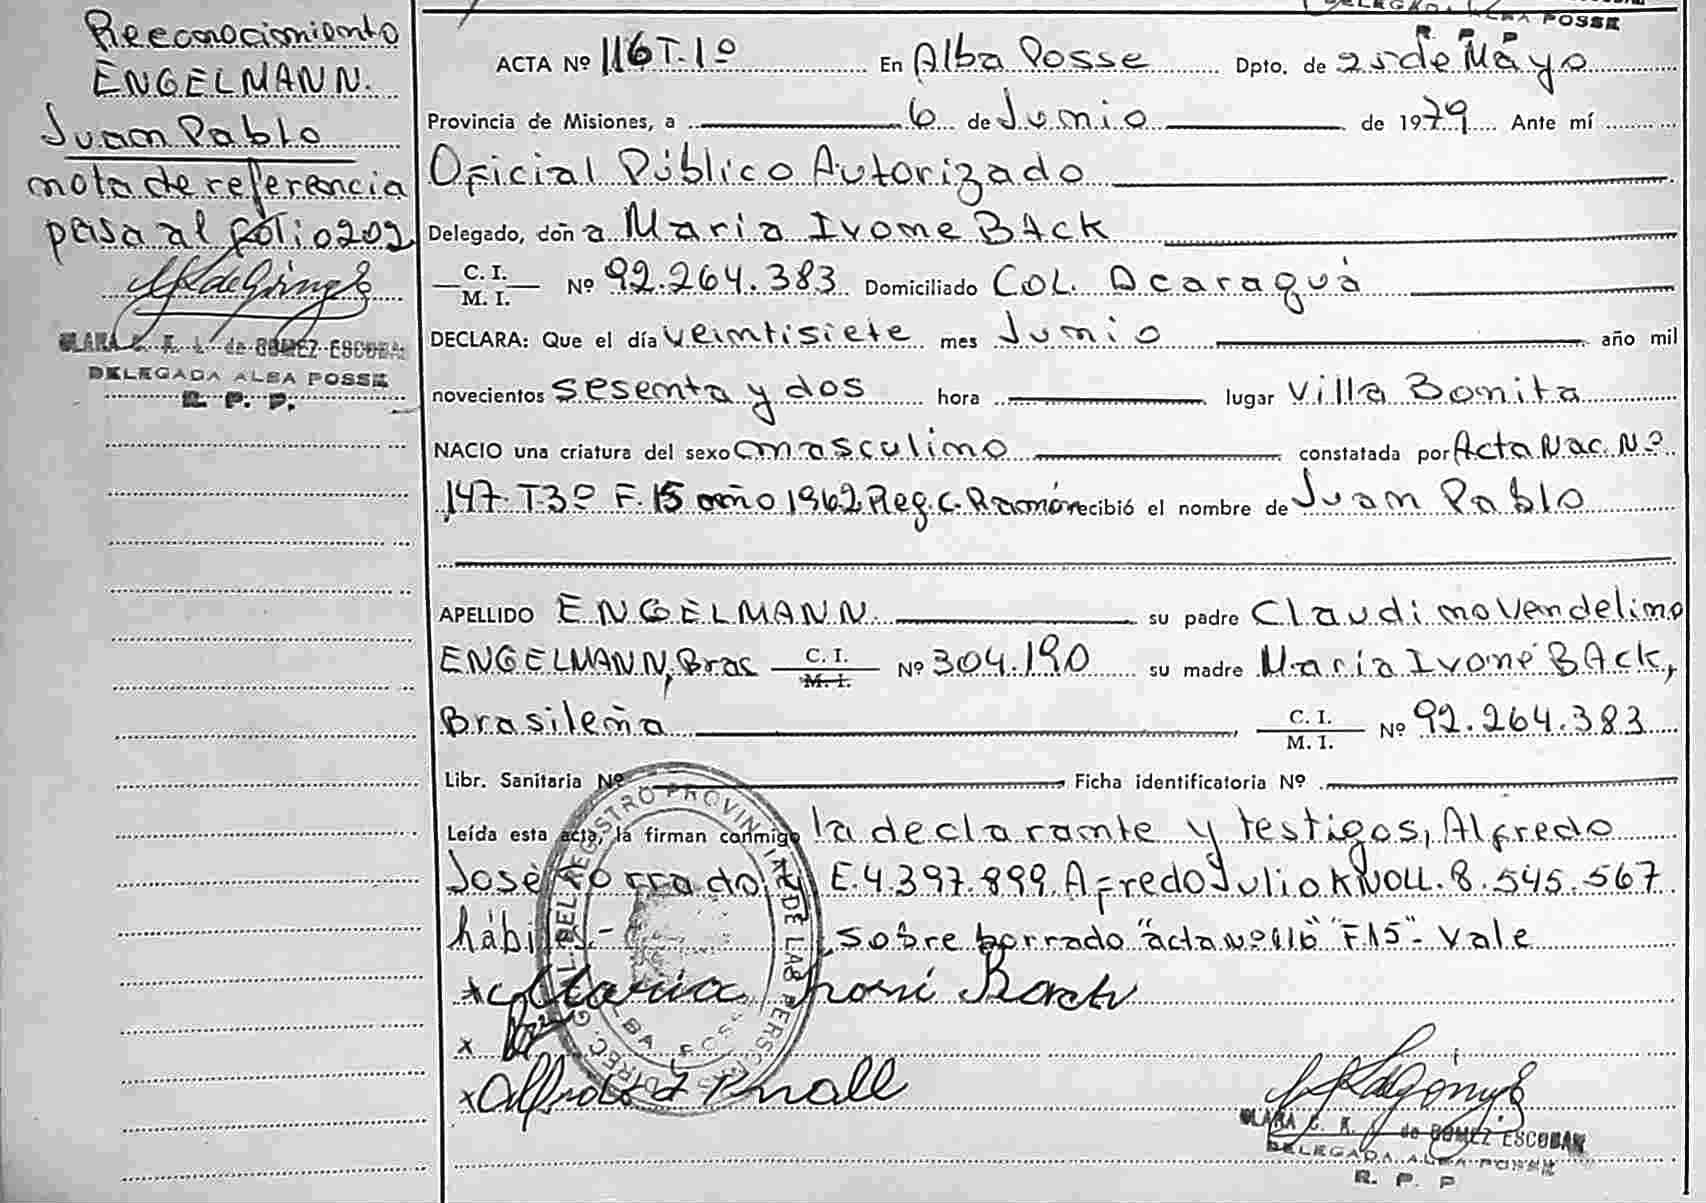 Reeconocimiento
ENGELMANN.
Juan Pablo
nota de referencia
pasa al folio 202
CLARA C. K. L. de GOMEZ ESCOBAR
DELEGADA ALBA POSSE
R. P. P.
DELEGADA ALBA POSSE
R. P. P.
ACTA Nº 116 T. 1º En Alba Posse Dpto. de 25 de Mayo
Provincia de Misiones, a 6 de Junio de 1979 Ante mí
Oficial Público Autorizado
Delegado, don a Maria Ivone BAck
C. I. / M. I. Nº 92.264.383 Domiciliado COL. Acaraguá
DECLARA: Que el día veintisiete mes Junio año mil
novecientos sesenta y dos hora lugar Villa Bonita
NACIO una criatura del sexo masculino constatada por Acta Nac. Nº
147. T.3º F. 15 año 1962 Reg. C. Ramón recibió el nombre de Juan Pablo
APELLIDO ENGELMANN. su padre Claudino Vendelino
ENGELMANN, Bras C. I. / M. I. Nº 304.190 su madre Maria Ivone BAck,
Brasileña C. I. / M. I. Nº 92.264.383
Libr. Sanitaria Nº Ficha identificatoria Nº
Leída esta acta, la firman conmigo la declarante y testigos, Alfredo
José Forrado, E. 4.397.899. Afredo Julio KNOLL. 8.545.567
hábiles.- sobre borrado "acta Nº 116" "F.15"- Vale
Maria Ivoni Back
Alfredo J Knoll
DIREC. GRAL. DEL REGISTRO PROVINCIAL DE LAS PERSONAS
ALBA POSSE
CLARA C. K. L. de GOMEZ ESCOBAR
DELEGADA ALBA POSSE
R. P. P